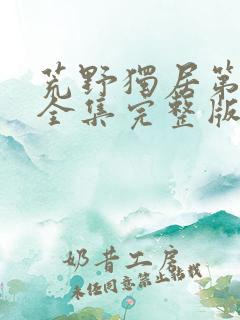 荒野獨居第
全集完整版
奶昔工房
未经同意禁止转载